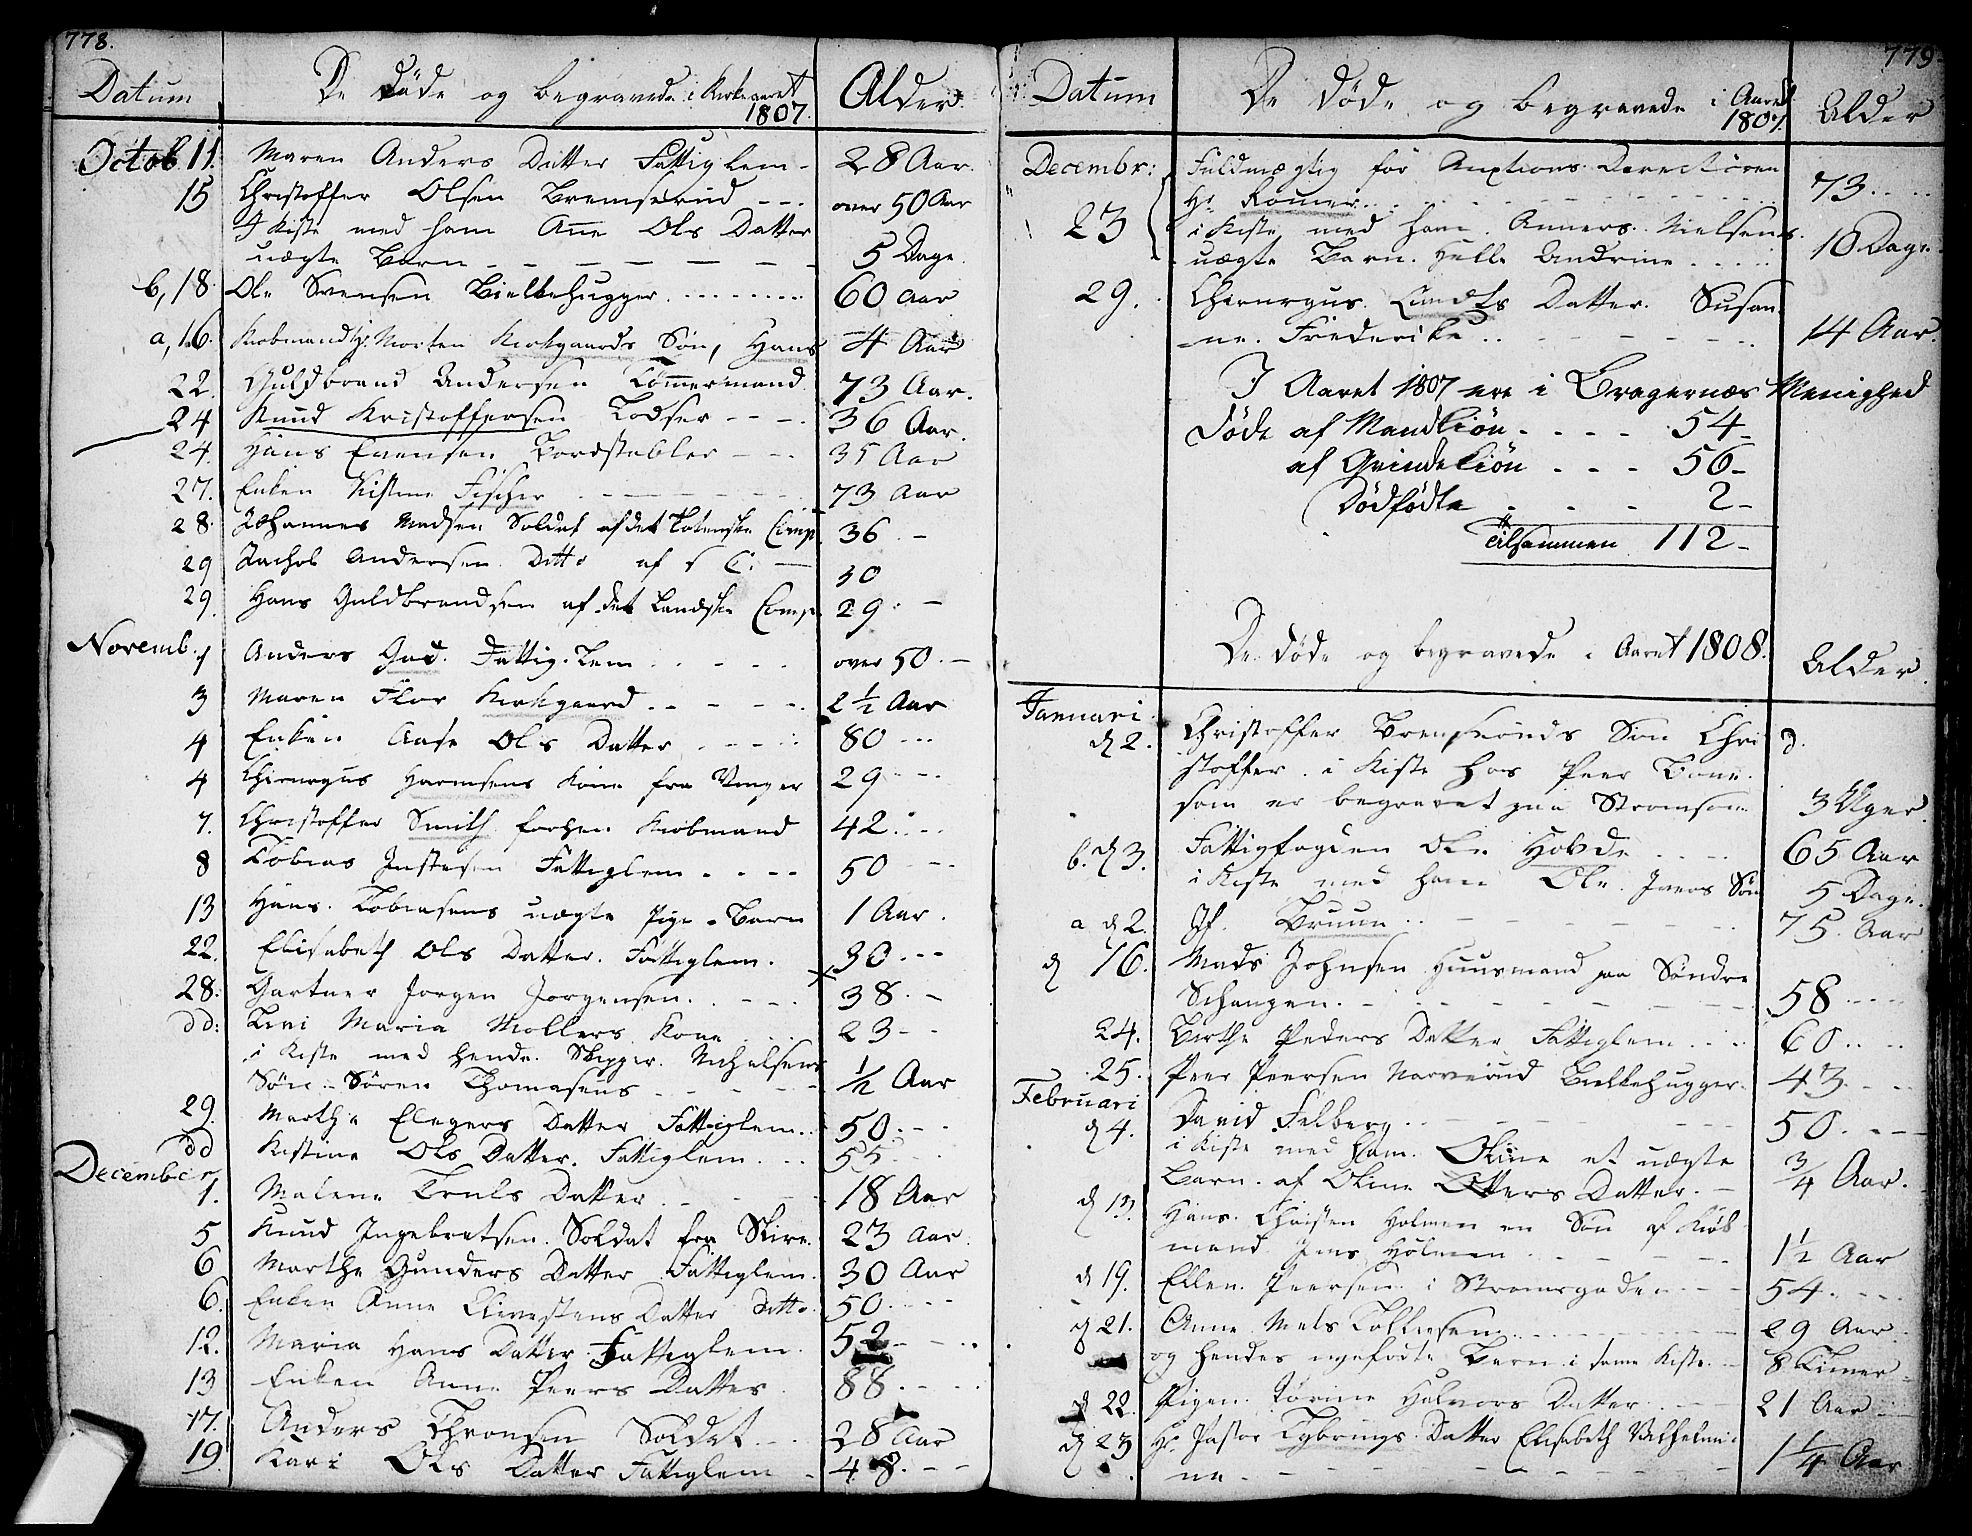 778.
Datum De Døde og begravede i Kirkeaaret 1807. Alder
Octob. 11. Maren Anders Datter Fattiglem - 28 Aar.
15 Christoffer Olsen Bremserud - - - over 50 Aar
I Kiste med ham Anne Ols Datter
uægte Barn - - - - - - 5 Dage.
b, 18. Ole Svensen Bielkehugger. . . . . . . . 60 Aar
a, 16. Kiobmand Hr. Morten Kirkgaards Søn, Hans 4 Aar
22. Guldbrand Andersen Tømmermand 73 Aar.
24 Knud Kristoffersen Lodser - - - 36 Aar.
24. Hans Evensen Bordstabler - - - 35 Aar
27. Enken Kistine Fischer - - - - - 73 Aar
28. Johannes Madsen Soldat af det Comp. 36. -
29 Jachob Andersen Ditto af C. - 30
29. Hans Guldbrandsen af det Comp. 29. -
Novemb. 1 Anders Gad. Fattig-Lem . . . . over 50. -
3 Maren Flor Kirkgaard . . - - - 2½ Aar
4 Enken Aase Ols Datter . - - - 80 - - -
4 Chirurgus Harmsens Kone fra Vinger 29 - - -
7. Christoffer Smith forhen Kiøbmand 42. - -
8 Tobias Justesen Fattiglem . - - - 50 - -
13 Hans Tobiasens uægte Pige-Barn 1 Aar.
22. Elisabeth Ols Datter. Fattiglem. 30 - - -
28. Gartner Jorgen Jorgensen. . - - . 38. -
dd: Maria Mollers Kone 23 - -
i Kiste med hende. Skipper Nichelsens
Søn - Søren Thomasens - - - - ½ Aar
29. Marthe Datter Fattiglem. . 50. - - -
dd Kistine Ols Datter. Fattiglem. . . 55 - - -
December 1. Malene Truls Datter . - - - 18 Aar
5 Knud Ingebretsen. Soldat fra 23 Aar.
6 Marthe Gunders Datter Fattiglem. 30 Aar
6. Enken Anne Datter Ditto. 50. - - -
12. Maria Hans Datter. Fattiglem. 52 - - - -
13 Enken Anne Peers Datter. 88. - - -
17. Anders Thronsen Soldat - - 28 Aar
19. Kari Ols Datter Fattiglem - 48. - -
779
Datum De Døde og begravede i Aaret 1807. Alder
Decembr: Fuldmægtig for Auctions Directøren
23 Hr. Romer. . . - - - - - - - 73. . . .
i Kiste med ham. Anners Nielsens
uægte Barn. Helle Andrine. . . . . 10 Dage.
29. Chirurgus Lundts Datter. Susan-
-ne. Friederike . . - - - - - - 14 Aar.
I Aaret 1807 ere i Bragernæs Menighed
Døde af Mandkiøn. - - - - 54 -
af Qvindekiøn . - - - 56 -
Dødfødte . - - - 2 -
Tilsammen 112 -
De døde og begravede i Aaret 1808. Alder.
Januari d 2. Christoffer Bremseruds Søn Chri-
stoffer. i Kiste hos Peer
som er begravet paa Strømsøe 3 Uger.
b. d 3. Fattigfogden Ole Hovde . . . . 65 Aar
i Kiste med ham Ole. Ivers Søn 5 Dage.
a d 2. Jf. Bruun . . - - - - - 75. Aar
d 16. Mads Johnsen Huusmand paa Søndre
Schanzen. - - - - - - - 58 - - - -
24. Birthe Peders Datter Fattiglem . . . . 60. . . .
25. Peer Peersen Bielkehugger. 43. - -
Februari d 4. David Felberg . . - - - - - 50. - -
i Kiste med ham. Oline et uægte
Barn. af Oline Otters Datter. - ¾ Aar.
d 13. Hans. Christen Holmen en Søn af Kiøb-
mand Jens Holmen . . - - - - 1½ Aar
d 19. Ellen. Peersen i Strømsgaden - - - 54. - - -
d 21. Anne Niels - - - - 29 Aar
og hendes nyefødte Barn i same Kiste. - 8 Timer.
d 22. Pigen. Torine Halvors Datter. . - 21 Aar
d 23 Hr. Pastor Tybrings Datter Elisabeth Vilhelmi-
ne - - - - - - - - 1¼ Aar